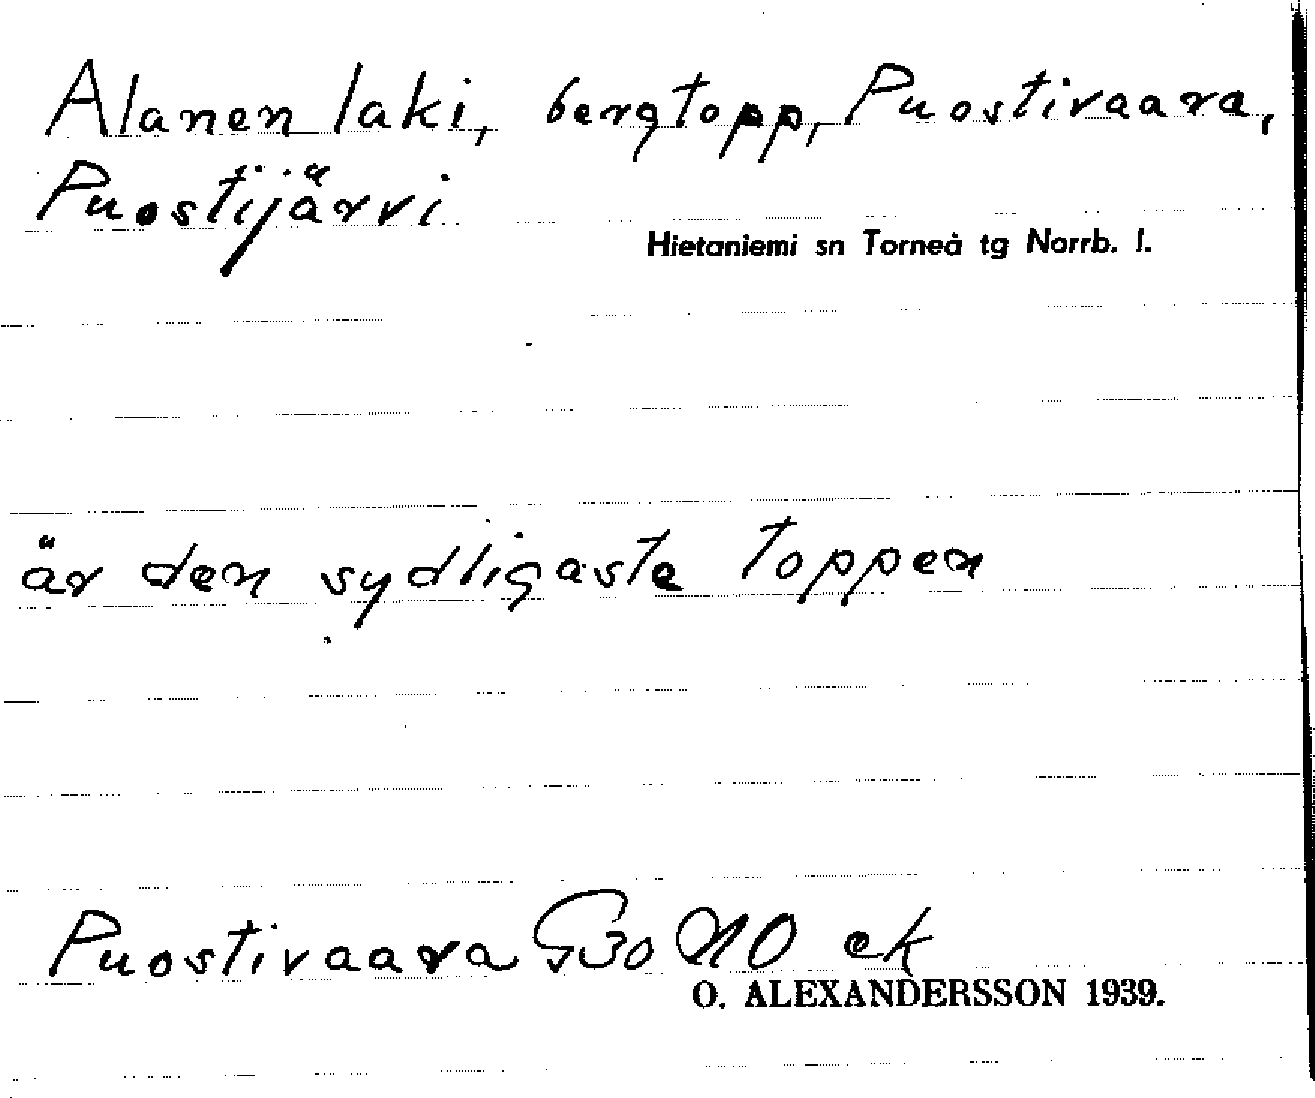 Alanen laki, bergtopp, Puostivaara,
Puostijärvi
Hietaniemi sn Torneå tg Norrb. l.
är den sydligaste toppen
Puostivaara G30 NO ek
O. ALEXANDERSSON 1939.